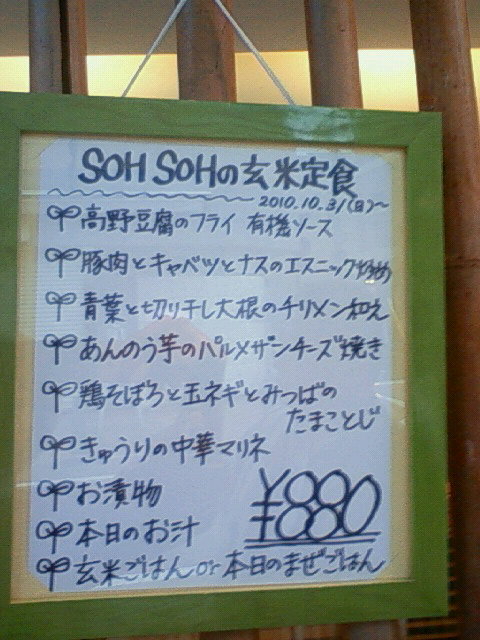 SOH SOHの玄米定食
2010.10.31(日)〜
高野豆腐のフライ 有機ソース
豚肉とキャベツとナスのエスニック炒め
青菜と切り干し大根のチリメン和え
あんのう芋のパルメザンチーズ焼き
鶏そぼろと玉ネギとみつばの
たまごとじ
きゅうりの中華マリネ
お漬物
本日のお汁
¥880
玄米ごはん or 本日のまぜごはん